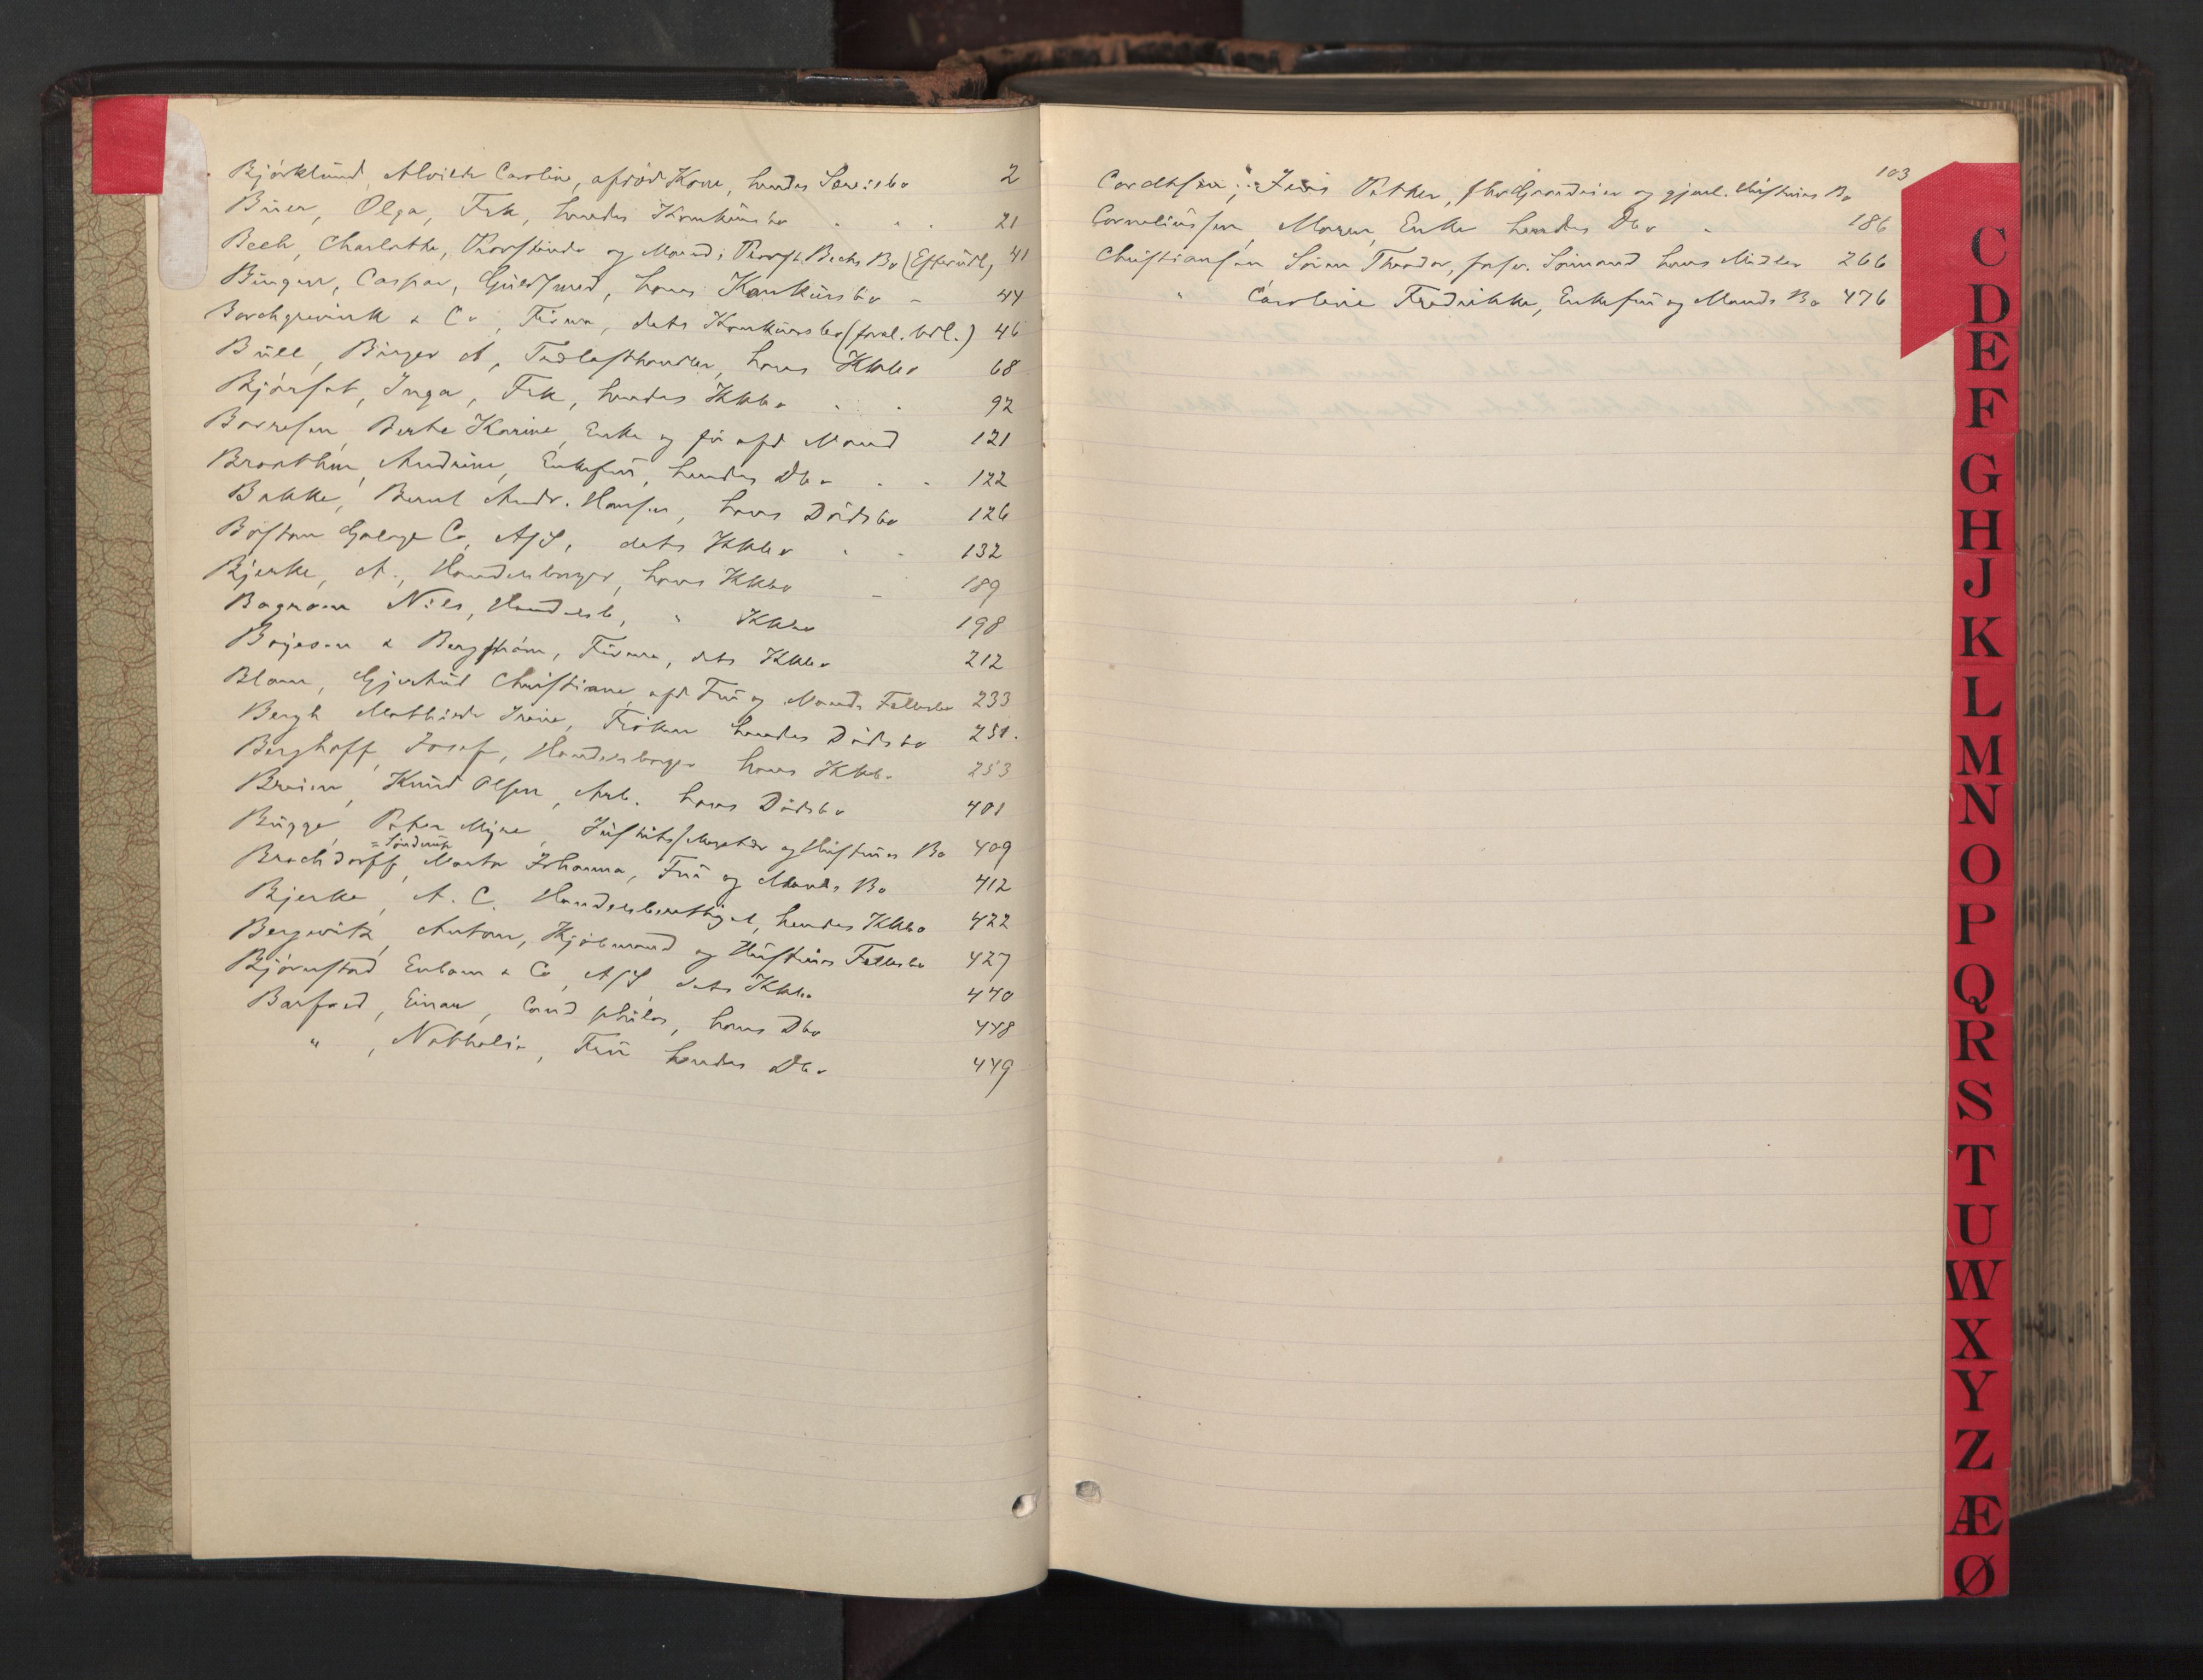 Björklund, Alvilde Caroline, afdød Kone, hendes Særsbo 2
Buer, Olga, Frk, hendes Konkursbo 21
Bech, Charlotte, Provstinde og Mand, Provst Bechs Bo (Efterutl) 41
Bünger, Caspar, Guldsmed, hans Konkursbo 44
Borchgrevink & Co, Firma, dets Konkursbo (forel. utl.) 46
Bull, Birger A, Trælasthandler, hans Kkbo 68
Bjørset, Inga, Frk, hendes Kkbo 92
Borresen, Berte Karine, Enke og før afd Mand 121
Braathen, Andrine, Enkefru, hendes Dbo 122
Bakke, Bernt Andr. Hansen, hans Dødsbo 126
Boston Galoge Co, A/S, dets Kkbo 132
Bjerke, A., Handelsborger, hans Kkbo 189
Bogmann Nils, Handelsb, " Kkbo 198
Bojesen & Bergstrøm, Firma, dets Kkbo 212
Blom, Gjertrud Christiane, afd Fru og Mands Fællesbo 233
Bergh Mathilde Irene, Frøken hendes Dødsbo 251.
Berghoff, Josef, Handelsborger hans Kkbo 253
Breien, Knud Olsen, Arb. hans Dødsbo 401
Bugge, Peter Myre, Justitssekretær og Hustrus Bo 409
= Sönderup
Brochdorff, Marta Johanna, Fru og Mands Bo 412
Bjerke, A. C. Handelsberettiget, hendes Kkbo 422
Bergwitz, Anton, Kjøbmand og Hustrus Fællesbo 427
Bjørnstad Enbom & Co, A/S, dets Kkbo 440
Barfoed, Einar, Cand philos, hans Dbo 448
" , Nathalie, Fru hendes Dbo 449
103
Cordtsen, Jens Petter, og gjenl. Hustrus Bo
Corneliussen, Maren, Enke hendes Dbo 186
Christiansen Søren Theodor, forsv. Sømand hans Midler 266
" Caroline Fredrikke, Enkefru og Mands Bo 476
C
D
E
F
G
H
J
K
L
M
N
O
P
Q
R
S
T
U
W
X
Y
Z
Æ
Ø